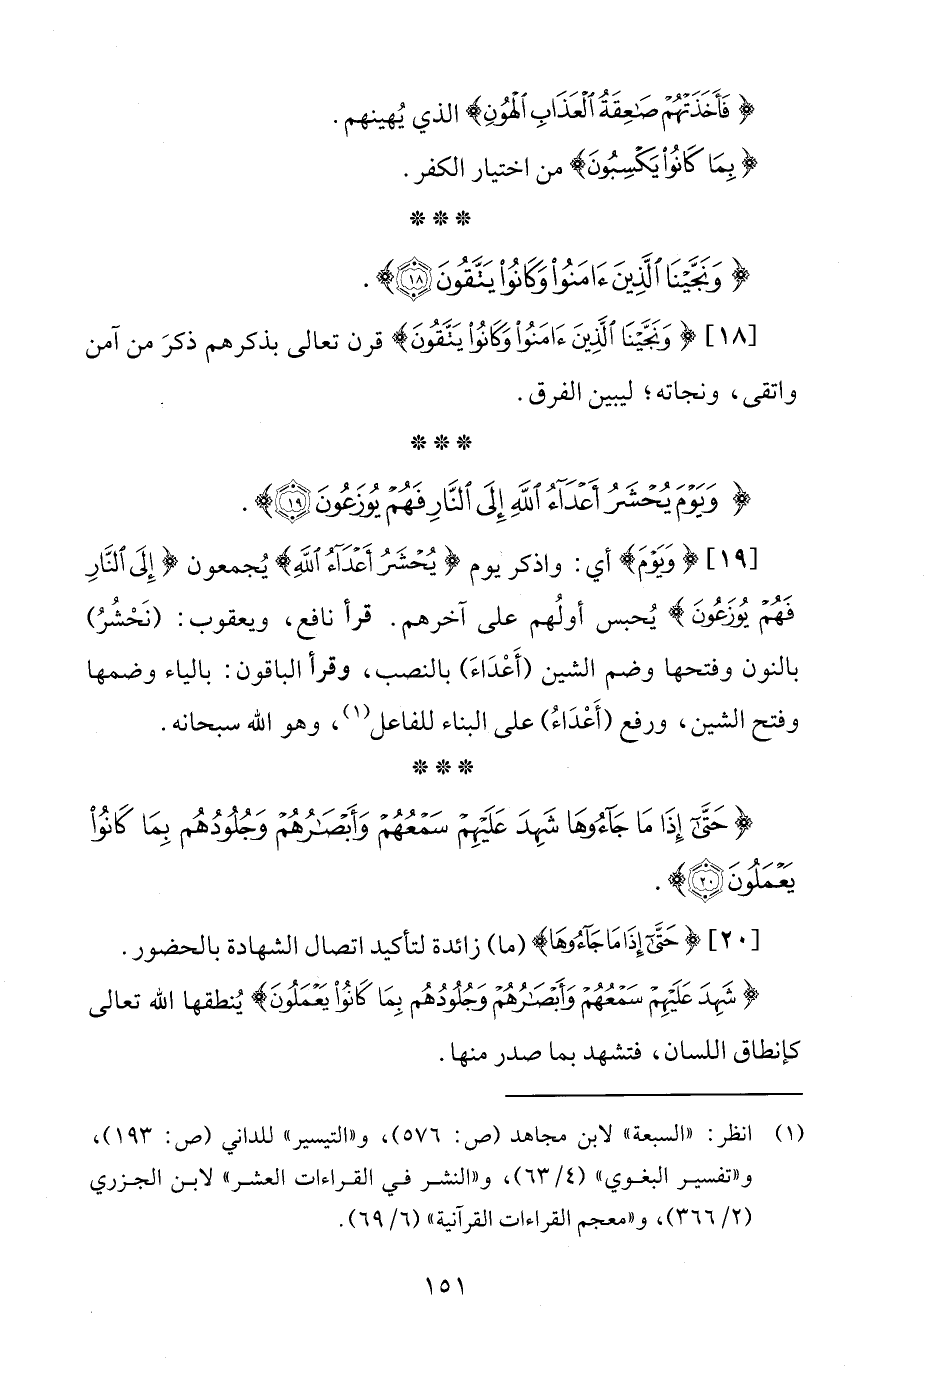 ﴿ فَأَخَذَتْهُمْ صَٰعِقَةُ ٱلْعَذَابِ ٱلْهُونِ﴾ الذي يُهينهم .
﴿ بِمَا كَانُوا۟ يَكْسِبُونَ﴾ من اختيار الكفر .
* * *
﴿ وَنَجَّيْنَا ٱلَّذِينَ ءَامَنُوا۟ وَكَانُوا۟ يَتَّقُونَ ١٨﴾ .
[١٨] ﴿ وَنَجَّيْنَا ٱلَّذِينَ ءَامَنُوا۟ وَكَانُوا۟ يَتَّقُونَ﴾ قرن تعالى بذكرهم ذكرَ من آمن
واتقى، ونجاته؛ ليبين الفرق .
* * *
﴿ وَيَوْمَ يُحْشَرُ أَعْدَآءُ ٱللَّهِ إِلَى ٱلنَّارِ فَهُمْ يُوزَعُونَ ١٩﴾ .
[١٩] ﴿ وَيَوْمَ﴾ أي: واذكر يوم ﴿ يُحْشَرُ أَعْدَآءُ ٱللَّهِ﴾ يُجمعون ﴿ إِلَى ٱلنَّارِ
فَهُمْ يُوزَعُونَ ﴾ يُحبس أولُهم على آخرهم. قرأ نافع، ويعقوب: (نَحْشُرُ)
بالنون وفتحها وضم الشين (أَعْدَاءَ) بالنصب، وقرأ الباقون: بالياء وضمها
وفتح الشين، ورفع (أَعْدَاءُ) على البناء للفاعل(١)، وهو الله سبحانه.
* * *
﴿ حَتَّىٰٓ إِذَا مَا جَآءُوهَا شَهِدَ عَلَيْهِمْ سَمْعُهُمْ وَأَبْصَٰرُهُمْ وَجُلُودُهُم بِمَا كَانُوا۟
يَعْمَلُونَ ٢٠﴾ .
[٢٠] ﴿ حَتَّىٰٓ إِذَا مَا جَآءُوهَا﴾ (ما) زائدة لتأكيد اتصال الشهادة بالحضور.
﴿ شَهِدَ عَلَيْهِمْ سَمْعُهُمْ وَأَبْصَٰرُهُمْ وَجُلُودُهُم بِمَا كَانُوا۟ يَعْمَلُونَ﴾ يُنطقها الله تعالى
كإنطاق اللسان، فتشهد بما صدر منها.
(١) انظر: «السبعة» لابن مجاهد (ص: ٥٧٦)، و«التيسير» للداني (ص: ١٩٣)،
و«تفسير البغوي» (٤/ ٦٣)، و«النشر في القراءات العشر» لابن الجزري
(٢/ ٣٦٦)، و«معجم القراءات القرآنية» (٦/ ٦٩).
١٥١